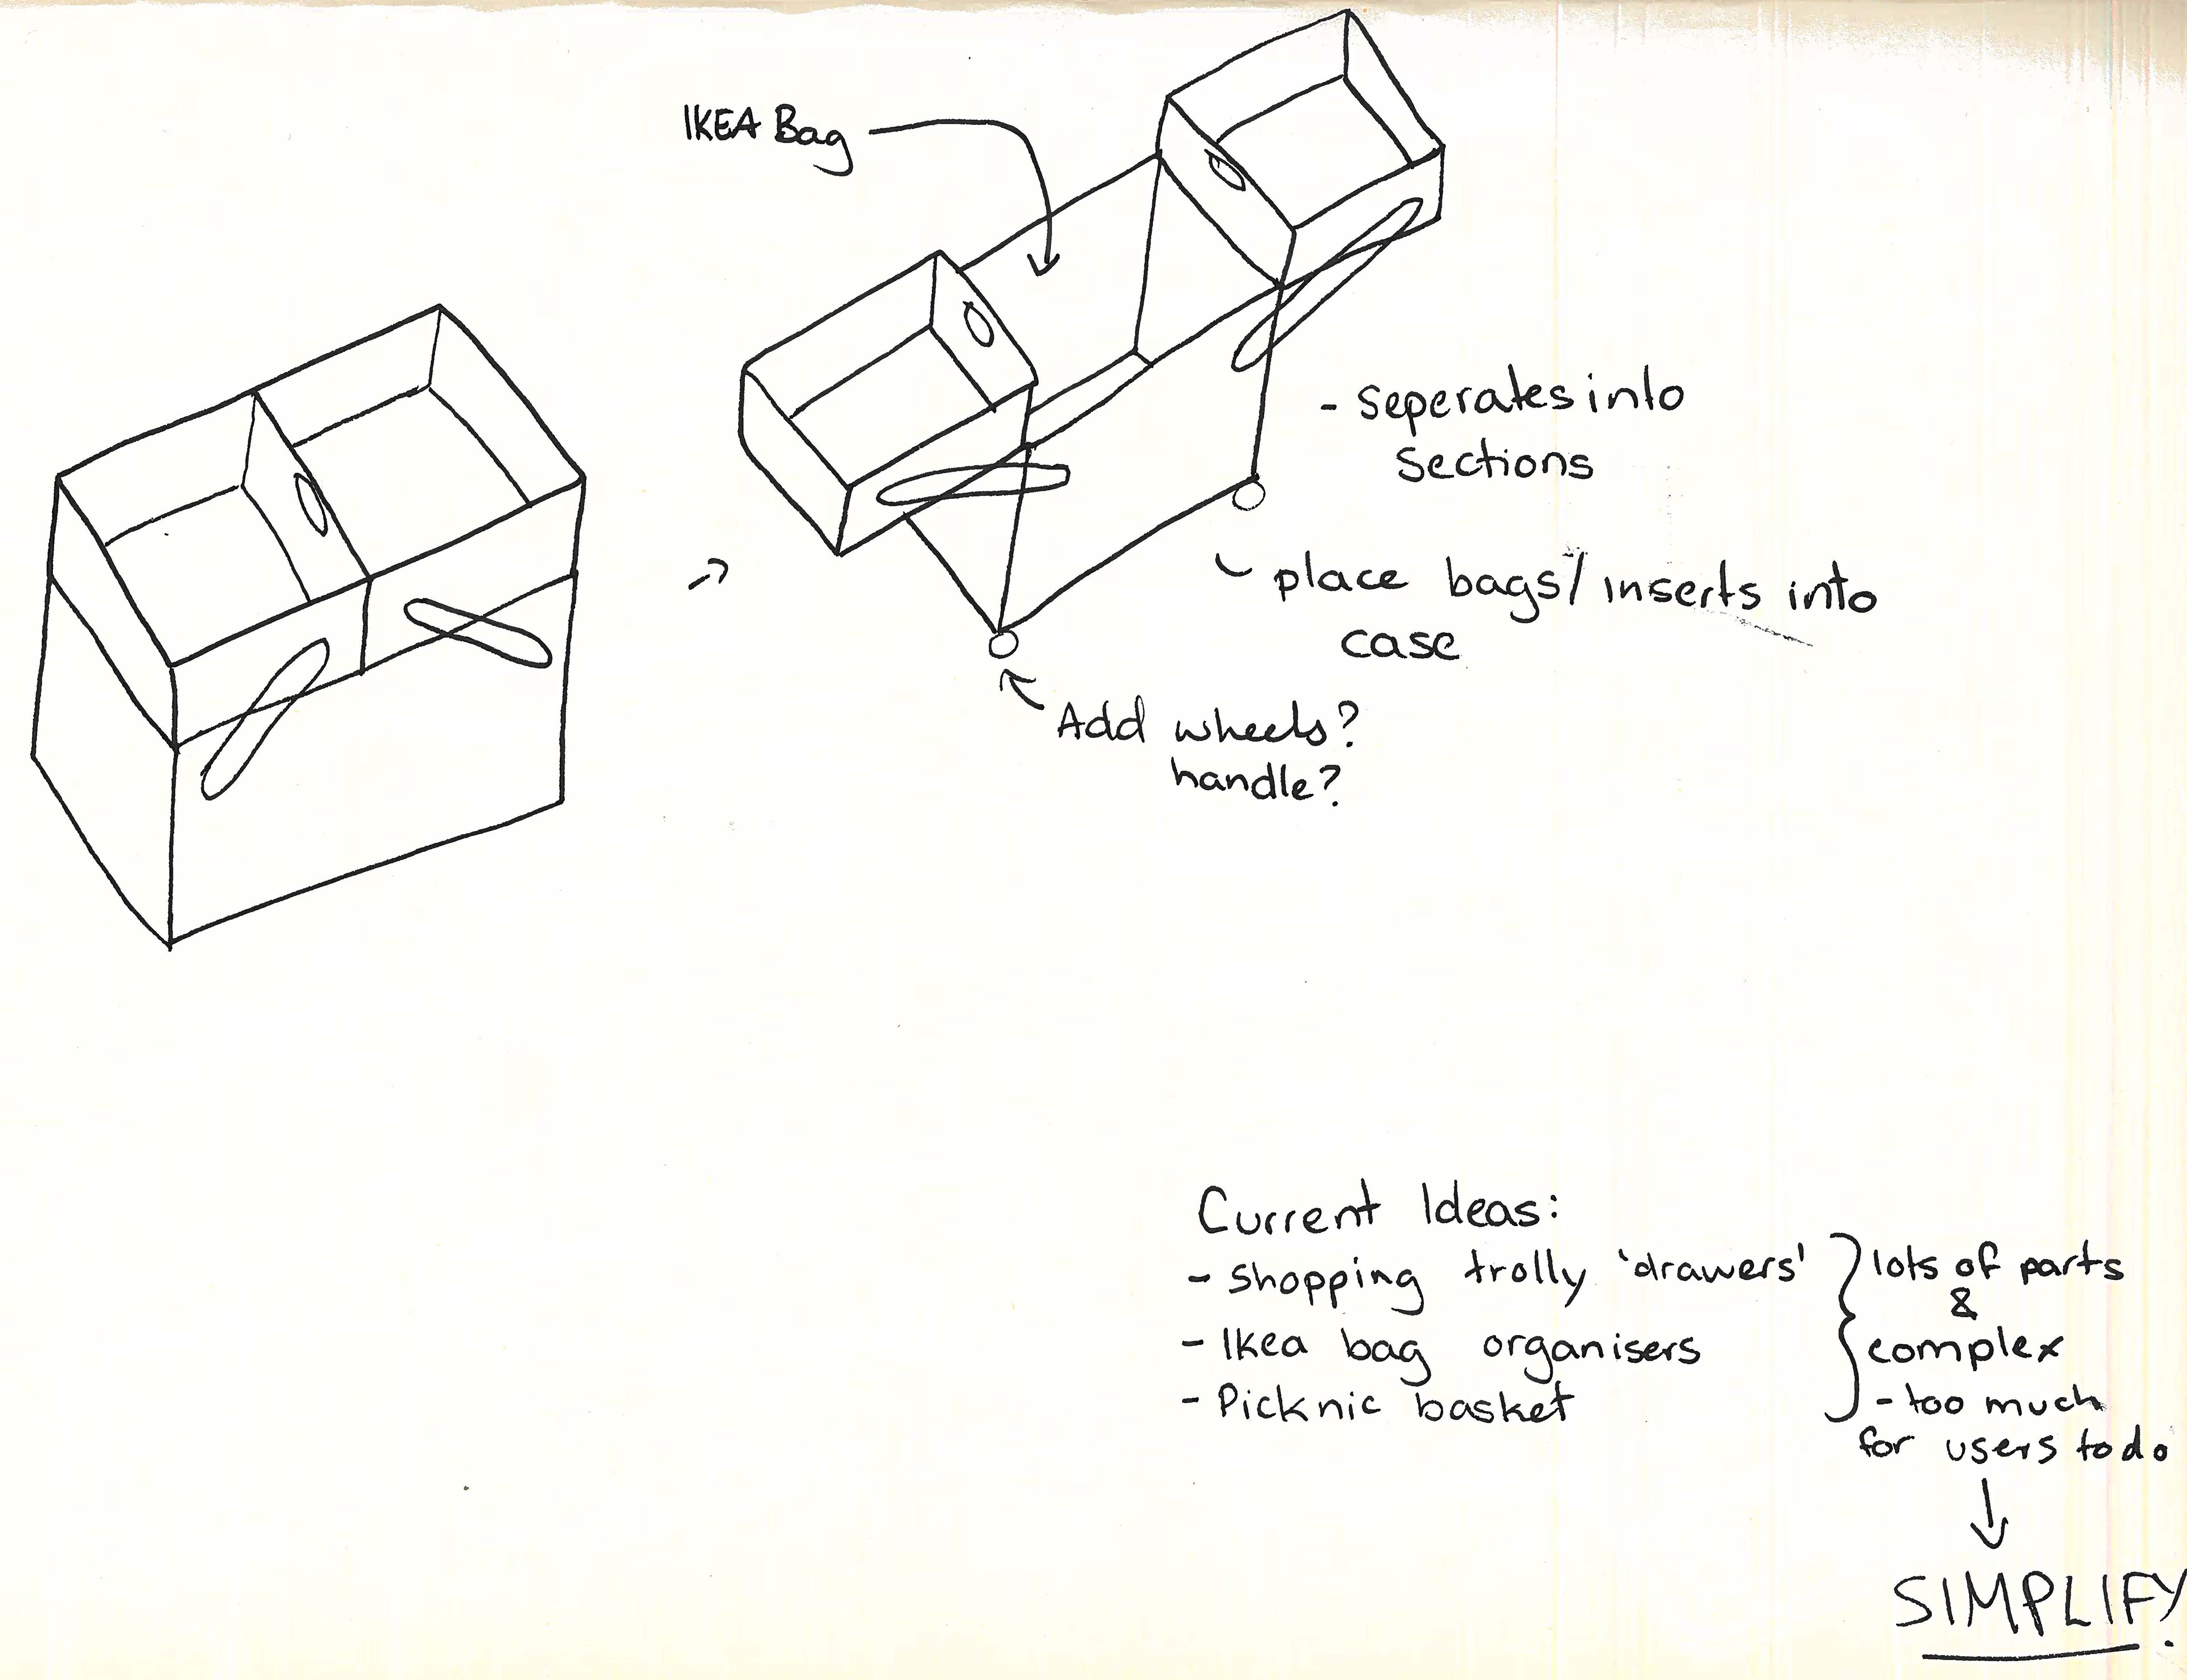 IKEA Bag
- Seperates into
Sections
place bags/inserts into
case
Add wheels?
handle?
Current Ideas:
- Shopping trolly 'drawers'
- Ikea bag organisers
- Picknic basket
lots of parts
&
complex
- too much
for users to do
SIMPLIFY.